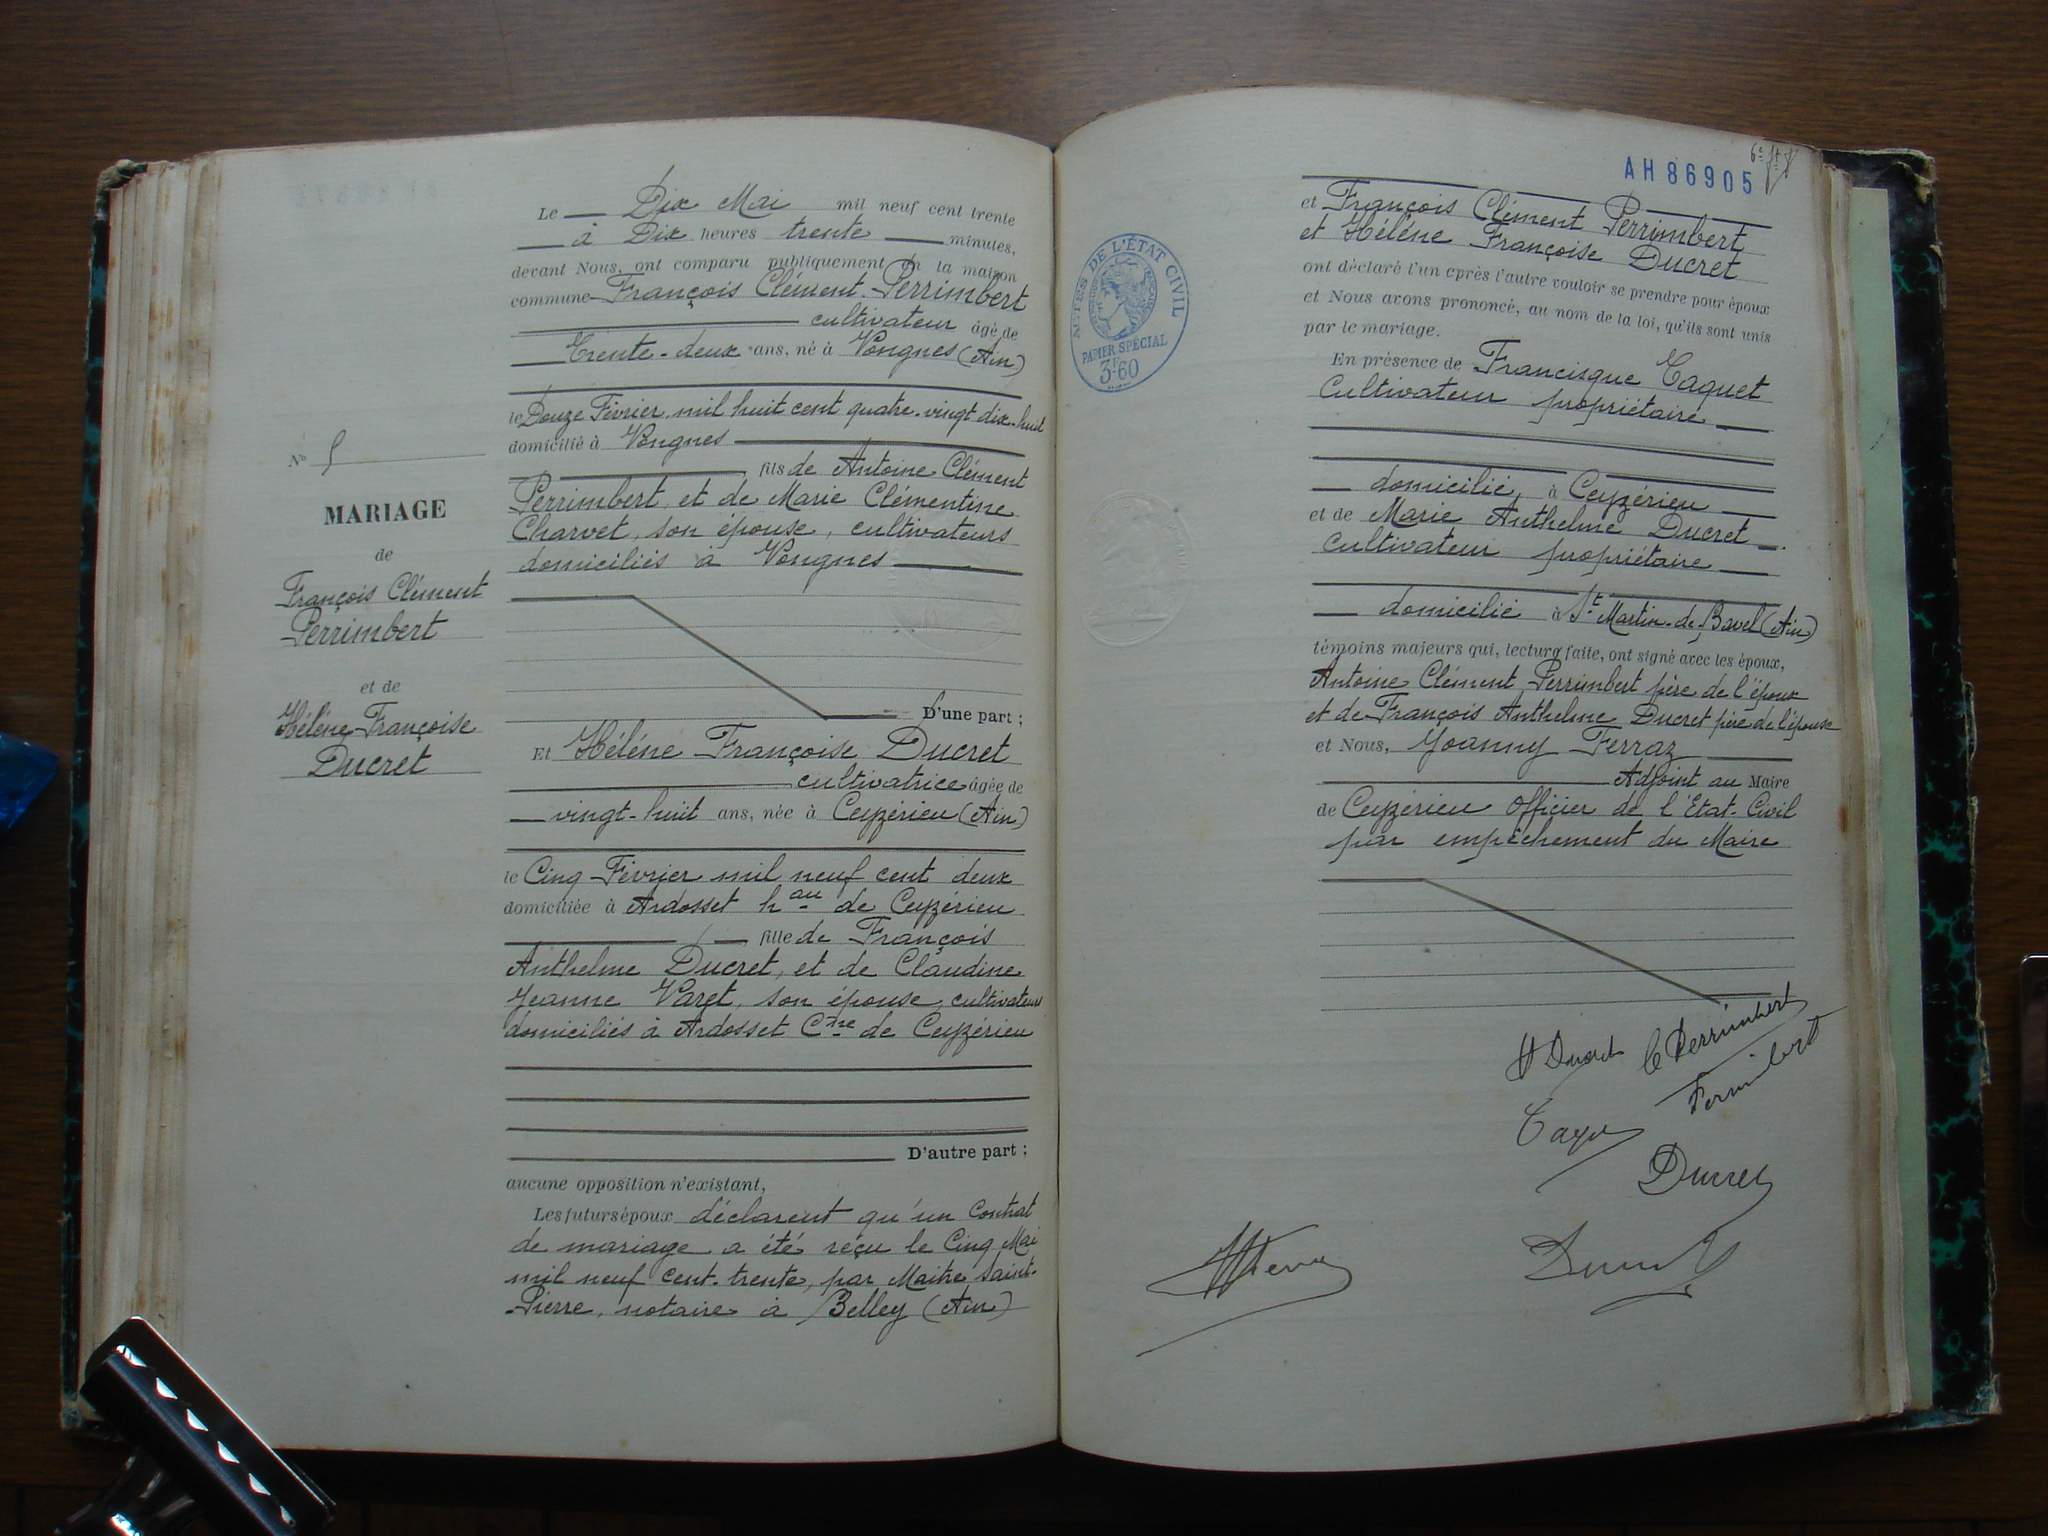 Le Dix Mai mil neuf cent trente
à Dix heures trente minutes,
devant Nous, ont comparu publiquement en la maison
commune François Clément Perrimbert
cultivateur âgé de
Trente-deux ans, né à Vongnes (Ain)
le Douze Février mil huit cent quatre-vingt dix-huit
domicilié à Vongnes
fils de Antoine Clément
Perrimbert, et de Marie Clémentine
Charvet, son épouse, cultivateurs
domiciliés à Vongnes
D'une part ;
Et Hélène Françoise Ducret
cultivatrice âgée de
vingt-huit ans, née à Ceyzérieu (Ain)
le Cinq Février mil neuf cent deux
domiciliée à Ardosset hau de Ceyzérieu
fille de François
Anthelme Ducret, et de Claudine
Jeanne Varet, son épouse, cultivateurs
domiciliés à Ardosset Cne de Ceyzérieu
D'autre part ;
aucune opposition n'existant,
Les futurs époux déclarent qu'un Contrat
de mariage a été reçu le Cinq Mai
mil neuf cent-trente, par Maitre Saint-
Pierre, notaire à Belley (Ain)
No 5
MARIAGE
de
François Clément
Perrimbert
et de
Hélène Françoise
Ducret
AH 86905
ACTES DE L'ÉTAT CIVIL
PAPIER SPÉCIAL
3F60
et François Clément Perrimbert
et Hélène Françoise Ducret
ont déclaré l'un après l'autre vouloir se prendre pour époux
et Nous avons prononcé, au nom de la loi, qu'ils sont unis
par le mariage.
En présence de Francisque Taquet
Cultivateur propriétaire
domicilié, à Ceyzérieu
et de Marie Anthelme Ducret
Cultivateur propriétaire
domicilié à St Martin-de-Bavel (Ain)
témoins majeurs qui, lecture faite, ont signé avec les époux,
Antoine Clément Perrimbert père de l'époux
et de François Anthelme Ducret père de l'épouse
et Nous, Joanny Ferraz
Adjoint au Maire
de Ceyzérieu Officier de l'Etat-Civil
par empêchement du Maire
H Ducret C Perrimbert
Perrimbert
Ducret